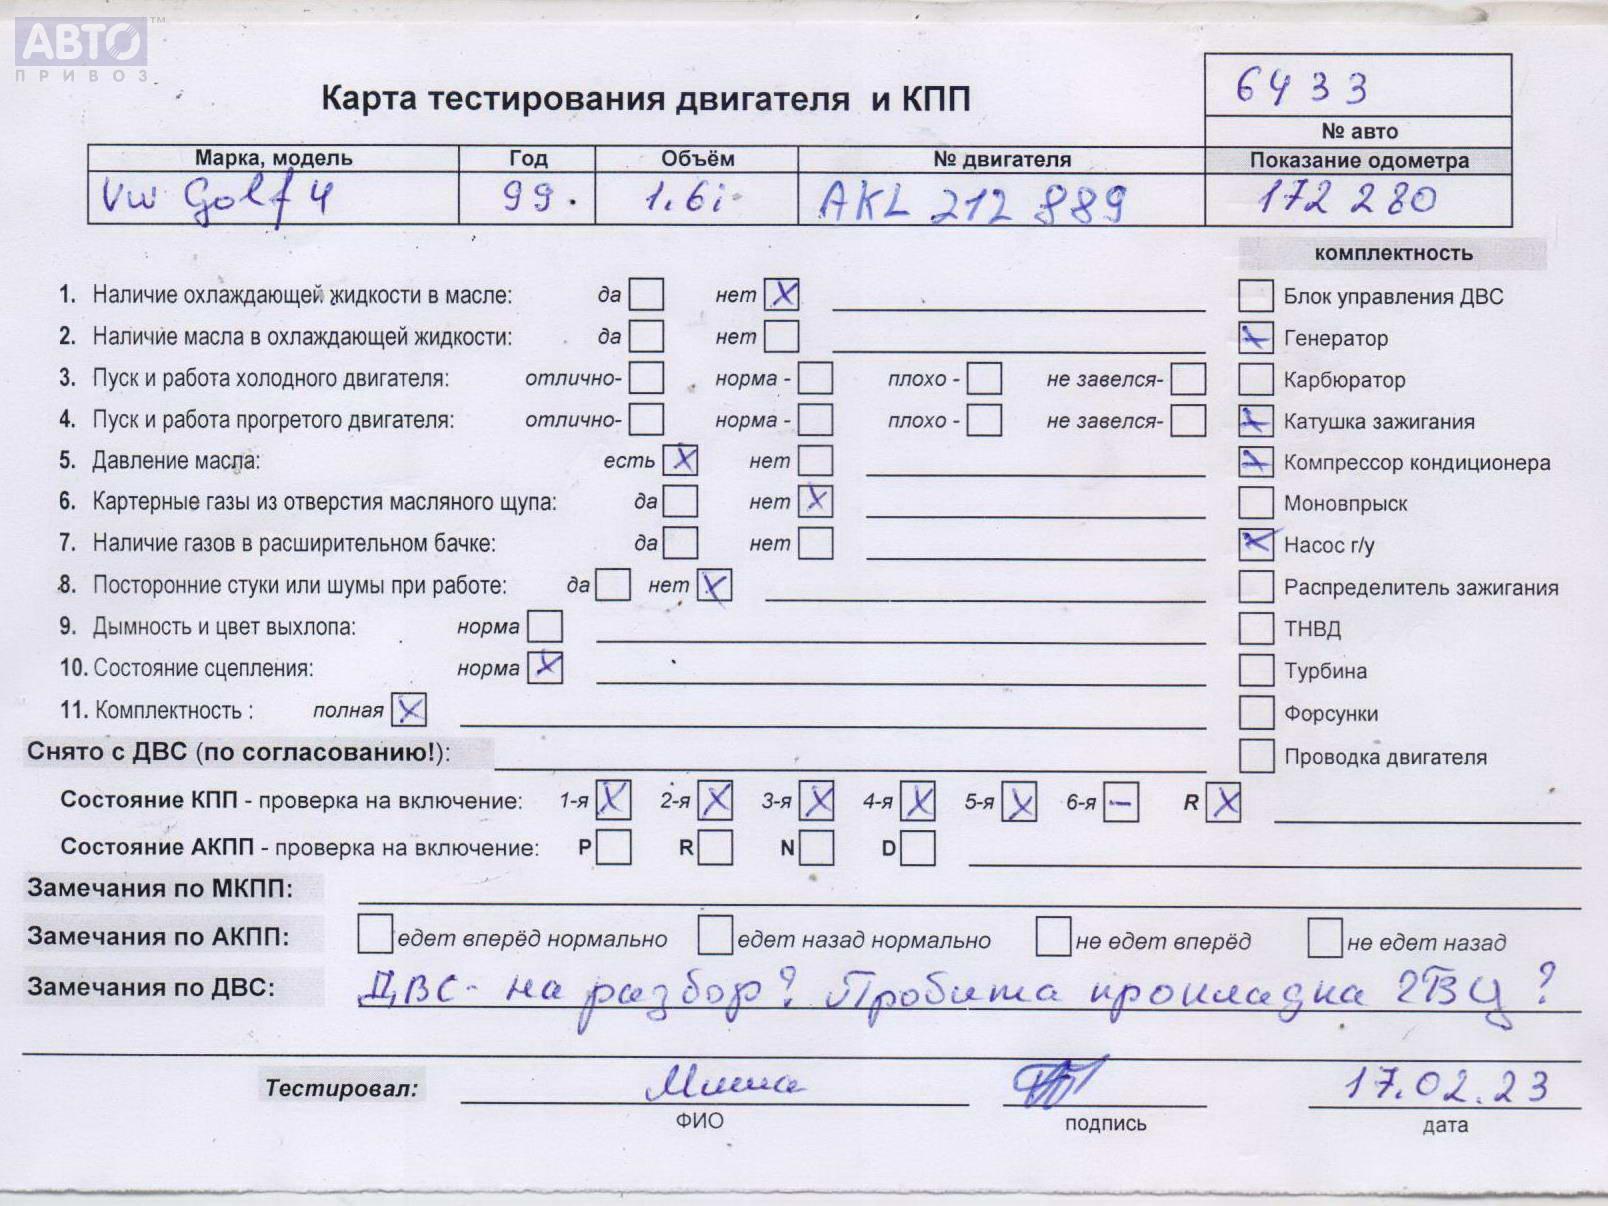 АВТО™
ПРИВОЗ
6433
Карта тестирования двигателя и КПП
№ авто
Марка, модель Год Объём № двигателя Показание одометра
VW Golf 4 99. 1.6i AKL 212 889 172 280
комплектность
1. Наличие охлаждающей жидкости в масле: да нет X
Блок управления ДВС
2. Наличие масла в охлаждающей жидкости: да нет
Генератор
3. Пуск и работа холодного двигателя: отлично- норма - плохо - не завелся-
Карбюратор
4. Пуск и работа прогретого двигателя: отлично- норма - плохо - не завелся-
Катушка зажигания
5. Давление масла: есть X нет
Компрессор кондиционера
6. Картерные газы из отверстия масляного щупа: да нет X
Моновпрыск
7. Наличие газов в расширительном бачке: да нет
Насос г/у
8. Посторонние стуки или шумы при работе: да нет X
Распределитель зажигания
9. Дымность и цвет выхлопа: норма
ТНВД
10. Состояние сцепления: норма X
Турбина
11. Комплектность : полная X
Форсунки
Снято с ДВС (по согласованию!):
Проводка двигателя
Состояние КПП - проверка на включение: 1-я X 2-я X 3-я X 4-я X 5-я X 6-я – R X
Состояние АКПП - проверка на включение: P R N D
Замечания по МКПП:
Замечания по АКПП: едет вперёд нормально едет назад нормально не едет вперёд не едет назад
Замечания по ДВС: ДВС - на разбор? Пробита прокладка ГВЦ?
Тестировал: Миша 17.02.23
ФИО подпись дата